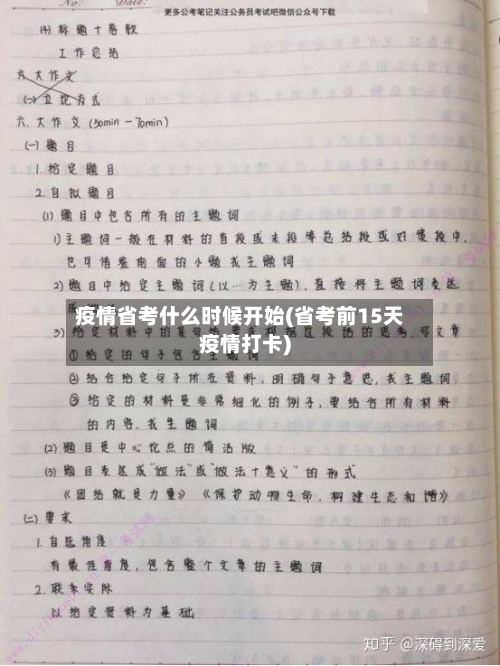 No: Date:
更多公考笔记关注公务员考试吧微信公众号下载
(4) 标题十条数
工作总结
六、大作文
(一) 立论方式
六、大作文 (50min — 70min)
(一) 题目
1. 给定题目
2. 自拟题目
(1) 题目中包含所有的主题词
1) 主题词一般在材料的首段或末段等总结段或过渡段中,
也可借鉴前面的小题找主题词
2) 题目中给定主题词 (以…为主题), 直接将主题词表达
疫情省考什么时候开始(省考前15天
疫情打卡)
3) 给定材料中的某句话
的思考, 写文章
① 给定的句子包含主题词
② 结合给定句子所在资料, 明确句子意思, 找主题词
③ 给定的材料是非常细化的例子, 要结合所有材料
的内容, 找主题词
(2) 题目是中心论点的简洁版
(3) 题目表达成“做法”或“做法十意义”的形式
《团结就是力量》《保护动物生命, 构建生态和谐》
(二) 要求
1. 自选角度
有最佳角度, 包含整个文章的主题词
2. 联系实际
以给定资料为基础
知乎 @深碍到深爱